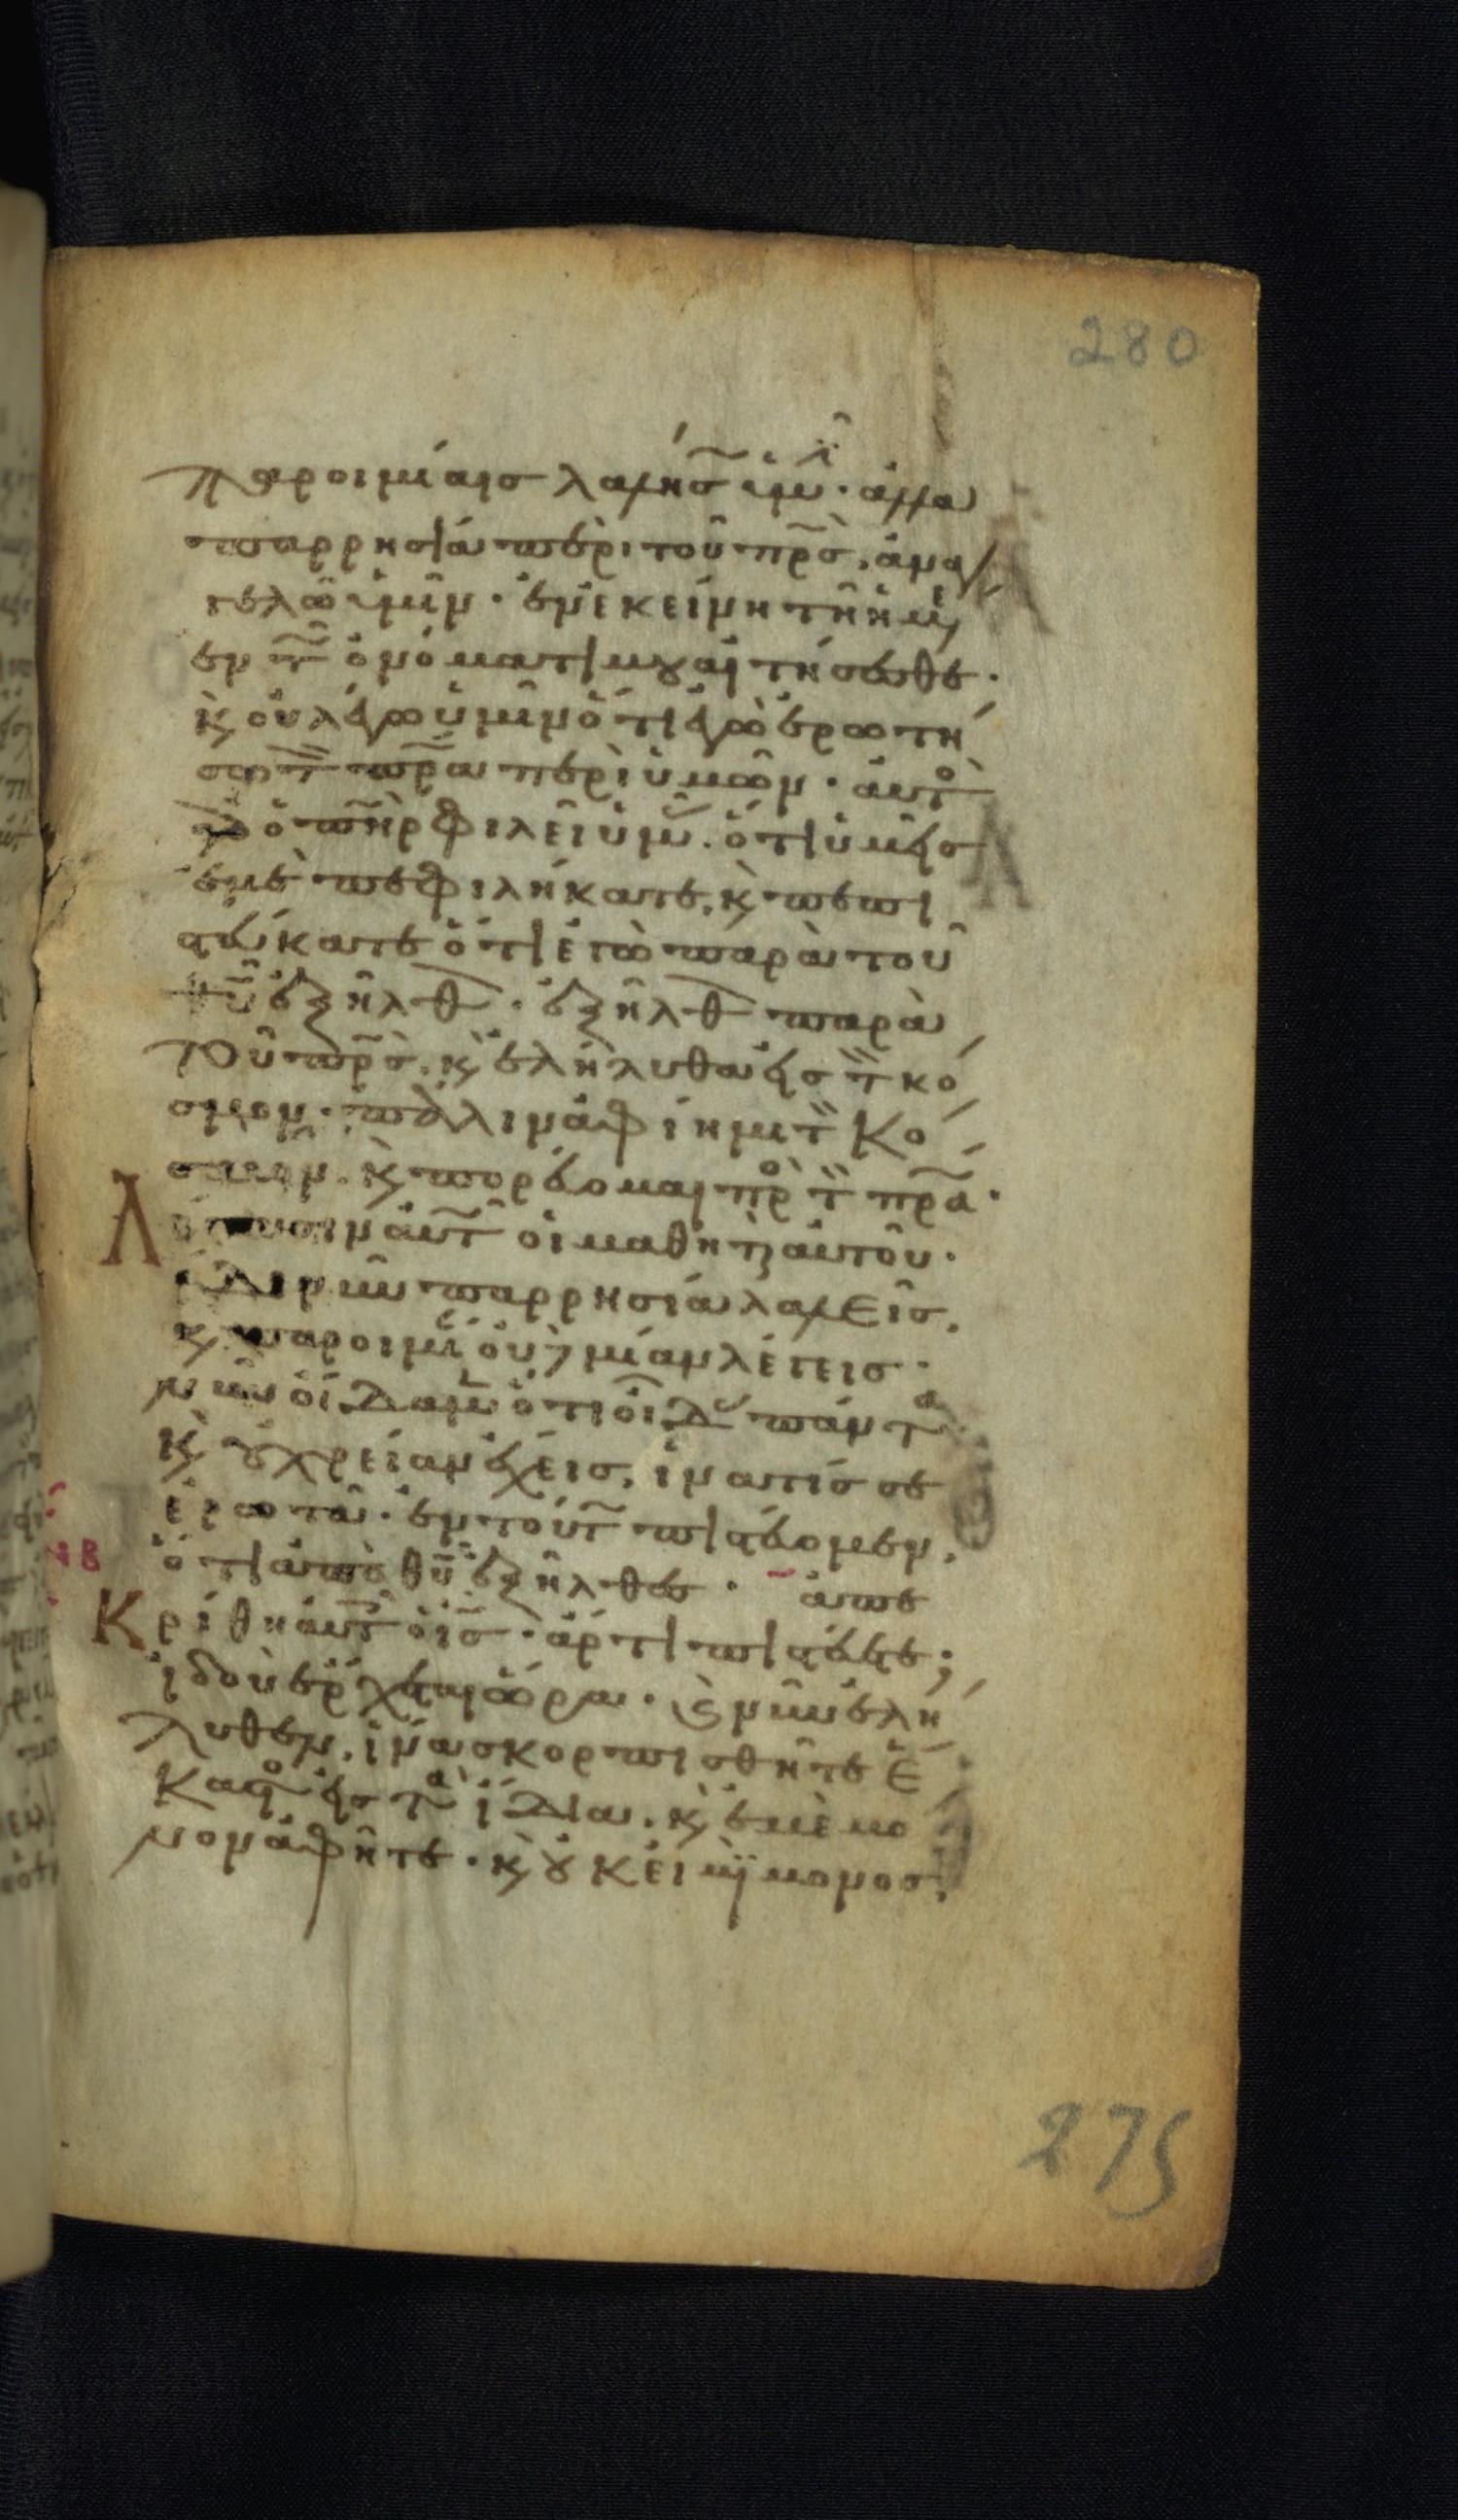 280
παροιμίαις λαλήσ ὑμῖν· ἀλλὰ
παρρησία περὶ τοῦ πρ̅σ̅, ἀναγ
γελῶ ὑμῖν· ἐν ἐκείνη τῆ ἡμ
ἐν τ ὀνόματί μου αἰτήσεσθε·
κ οὐ λέγω ὑμῖν ὅτι ἐγὼ ἐρωτή
σω τ πρ̅α̅ περὶ ὑμῶν· αὐτο
γὰρ ὁ π̅η̅ρ̅ φιλεῖ ὑμ. ὅτι ὑμεῖς
ἐμὲ πεφιλήκατε, κ πεπι
στεύκατε ὅτι ἐγὼ παρὰ τοῦ
θ̅υ̅ ἐξῆλθ· ἐξῆλθ παρὰ
τοῦ πρ̅σ̅. κ ἐλήλυθα εἰς τ κό
σμον· πάλιν ἀφίημι τ κό
σμον. κ πορεύομαι πρ τ πρ̅α̅·
Λέγουσιν αὐτ οἱ μαθητ αὐτοῦ·
ἴδε νῦν παρρησία λαλεῖς,
κ παροιμί οὐδεμίαν λέγεις·
νῦν οἴδαμ ὅτι οἶδ πάντα
κ οὐ χρείαν ἔχεις, ἵνα τίς σε
ἐρωτᾶ· ἐν τούτ πιστεύομεν,
ὅτι ἀπὸ θ̅υ̅ ἐξῆλθες· ἀπε
Κρίθη αὐτ ὁ ι̅σ̅· ἄρτι πιστεύετε;
ἰδοὺ ἔρχεται ὥρα· κ νῦν ἐλή
λυθεν, ἵνα σκορπισθῆτε ἕ
καστο εἰς τὰ ἴδια. κ ἐμὲ μό
νον ἀφῆτε· κ οὐκ εἰμὶ μόνος,
275